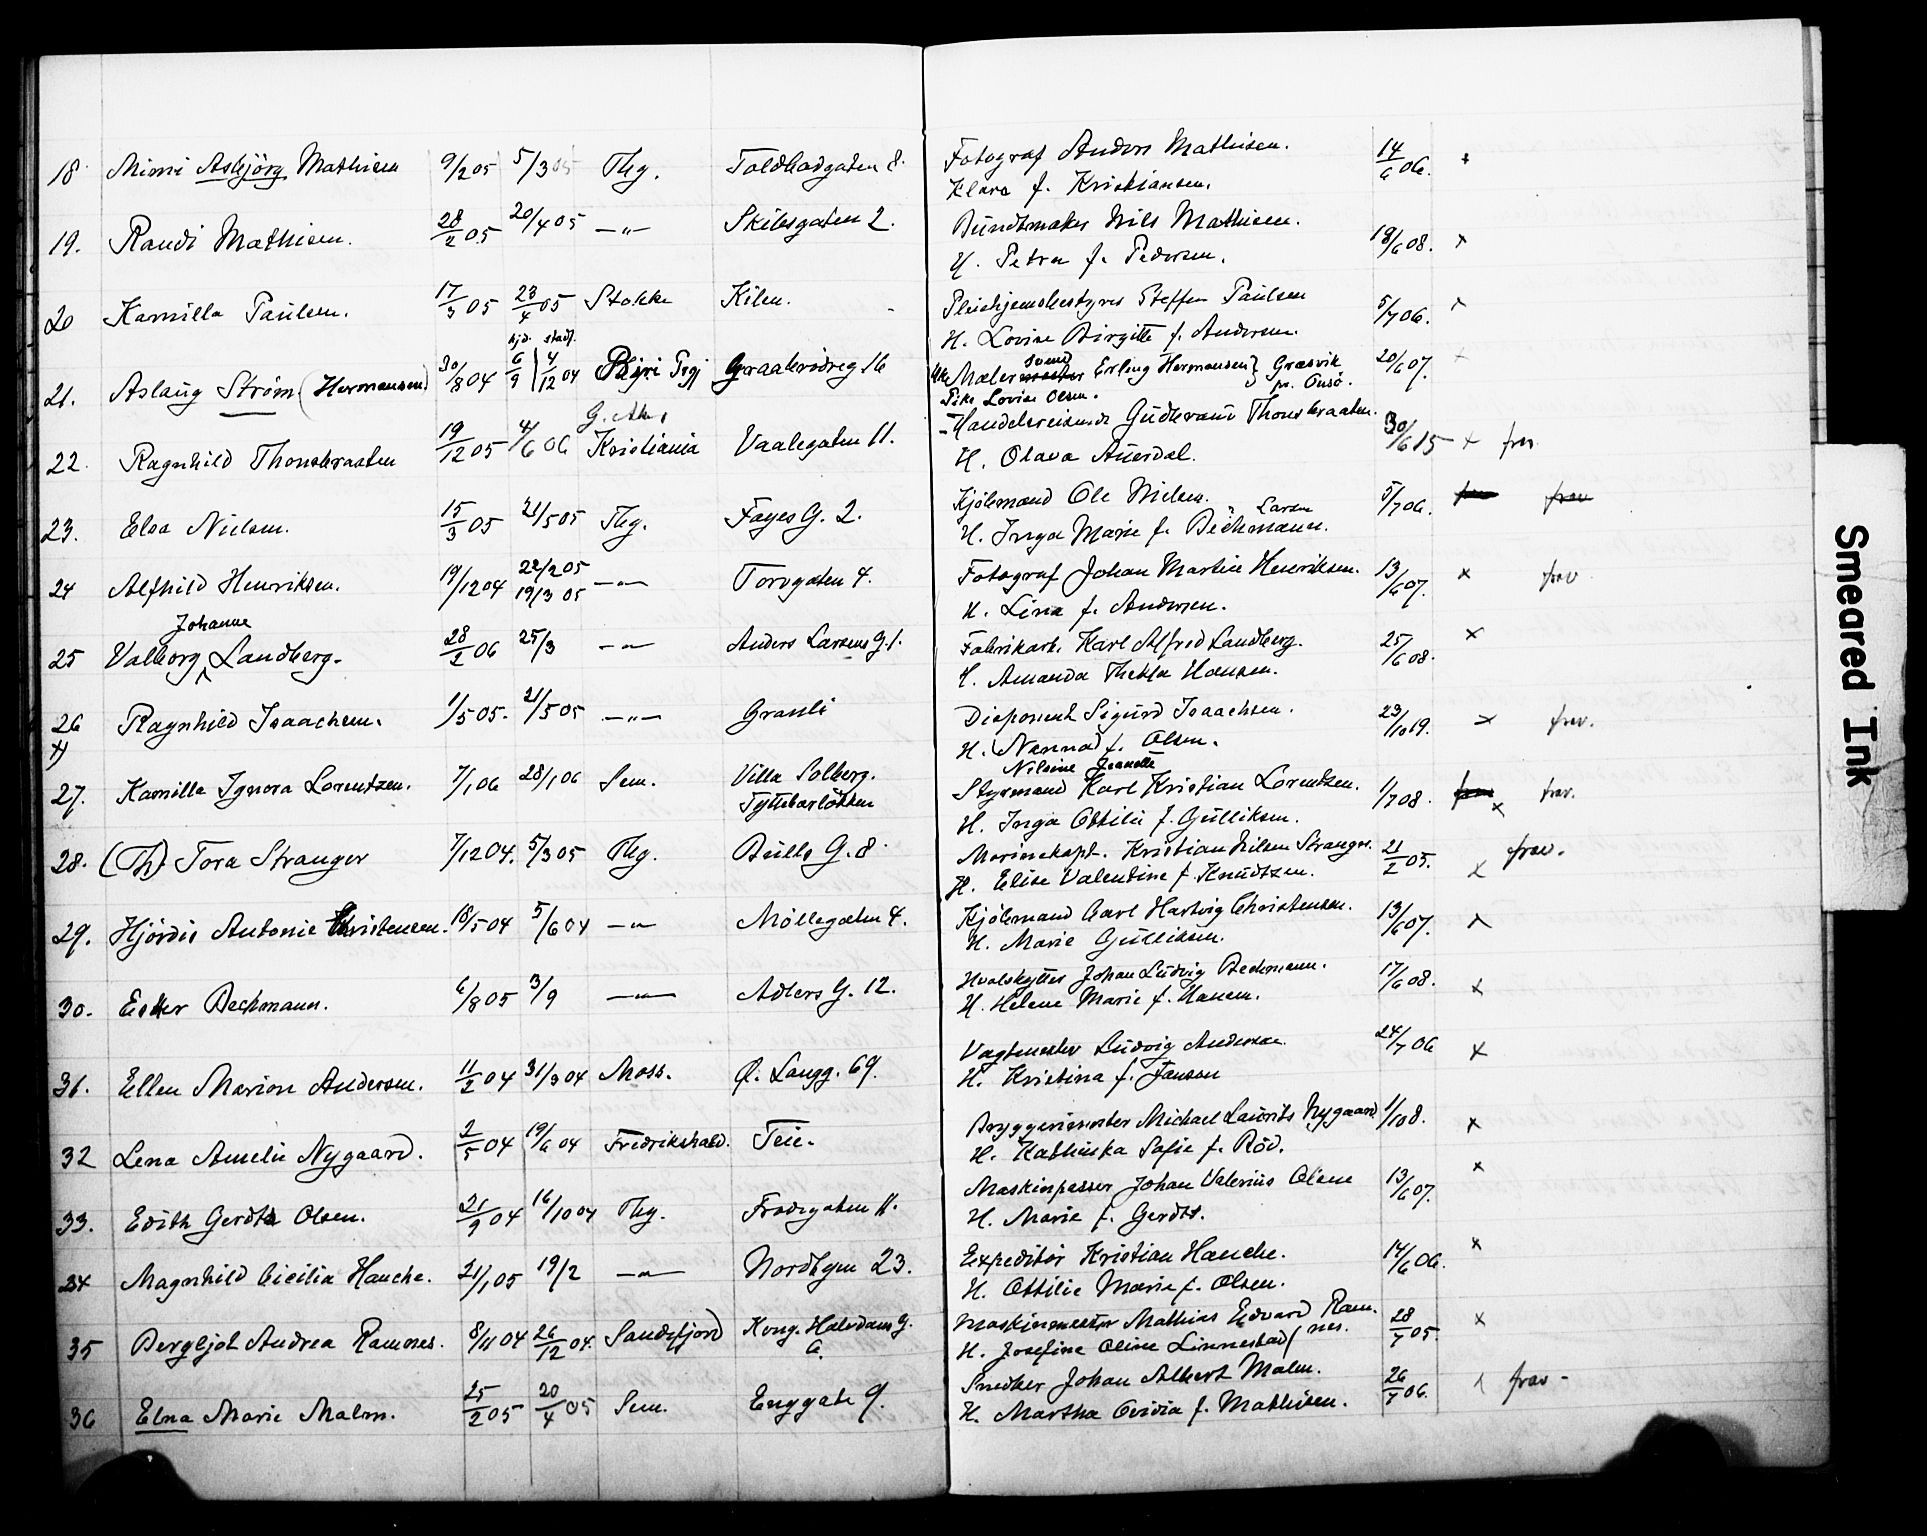 18 Mimi Asbjörg Mathisen 9/2 05 5/3 05 Tbg. Toldbodgaten 8. Fotograf Anders Mathisen. 14/6 06. x
Klara f. Kristiansen.
19. Randi Mathisen. 28/2 05 20/4 05 —"— Skibsgaten 2. Bundtmaker Nils Mathisen. 18/6 08. x
H. Petra f. Pedersen.
20 Kamilla Paulsen. 17/3 05 23/4 05 Stokke Kilen. Pleiehjemsbestyrer Steffen Paulsen 5/7 06. x
H. Lovise Birgitte f. Andersen.
hjd. stadf.
21. Aslaug Ström (Hermansen) 30/8 04 6/9 4/12 04 Graakrödveg 16 Maler svend Erling Hermansen Græsvik 20/6 07. x
Pike Lovise Olsen. pr. Onsö.
22. Ragnhild Thonsbraaten 19/12 05 4/6 06 Kristiania Vaalegaten 11. Handelsreisende Gudbrand Thonsbraaten. 30/6 15 x frav
H. Olava Auerdal.
23. Elsa Nielsen. 15/3 05 21/5 05 Tbg. Fayes G. 2. Kjölsmand Ole Nielsen. 5/7 06. frav
Larsen
H. Inga Marie f. Beckmann.
24 Alfhild Henriksen. 19/12 04 22/2 05 —"— Torvgaten 4. Fotograf Johan Martin Henriksen. 13/6 07. x frav
19/3 05 H. Lina f. Andersen.
Johanne
25 Valborg Landberg. 28/2 06 25/3 —"— Anders Larsens G. 1. Fabrikarb. Karl Alfred Landberg. 25/6 08. x
H. Amanda Thekla Hansen.
26 Ragnhild Isaachsen. 1/5 05. 21/5 05 —"— Granli Disponent Sigurd Isaachsen. 23/10 19. x frav.
H. (Nanna) f. Olsen.
Nilsine Jeanette
27. Kamilla Ignora Lorentzen. 7/1 06 28/1 06 Sem. Villa Solberg. Styrmand Karl Kristian Lorentzen. 1/7 08. x frav.
Tyttebærlökken H. Inga Ottilie f. Gulliksen.
28. (Th) Tora Stranger 7/12 04. 5/3 05 Tbg. Bulls G. 8. Marinekapt. Kristian Nilsen Stranger. 21/2 05. x frav.
H. Elise Valentine f. Knudtzen.
29. Hjördis Antonie Christensen. 18/5 04 5/6 04 —"— Möllegaten 4. Kjölsmand Carl Hartvig Christensen. 13/6 07. x
H. Marie Gulliksen.
30. Ester Beckmann. 6/8 05 3/9 —"— Adlers G. 12. Hvalskytter Johan Ludvig Beckmann. 17/6 08. x
H. Helene Marie f. Hansen.
31. Ellen Marion Andersen. 11/2 04 31/3 04 Moss. Ö. Langg. 69. Vagtmester Ludvig Andersen 24/7 06 x
H. Kristina f. Janson
32 Lena Amelie Nygaard. 2/5 04 19/6 04 Fredrikshald. Teie. Bryggerimester Michael Laurits Nygaard 1/1 08. x
H. Kathinka Sofie f. Röd.
33. Edith Gerdts Olsen. 21/9 04 16/10 04 Tbg. Frodegaten 11. Maskinpasser Johan Valerius Olsen 13/6 07. x
H. Marie f. Gerdts.
34 Magnhild Cicilia Hauche. 21/1 05 19/2 —"— Nordbyen 23. Expeditör Kristian Hauche. 14/6 06. x
H. Ottilie Marie f. Olsen.
35 Bergljot Andrea Ramnes. 8/11 04 26/12 04. Sandefjord Kong. Halvdans G. 6. Maskinmester Mathias Edvard Ramnes. 28/7 05. x
H. Josefine Oline Linnestad
36 Elna Marie Malm. 25/2 05 20/4 05 Sem. Enggate 9. Snedker Johan Albert Malm. 26/7 06. x frav-
H. Martha Ovidia f. Mathisen.
Smeared Ink